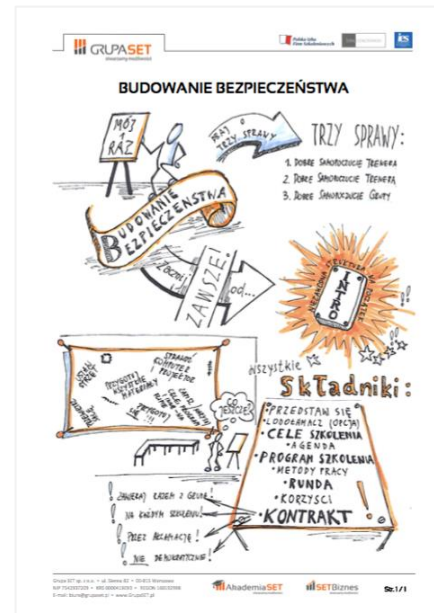 GRUPASET
stwarzamy możliwości
Polska Izba
Firm Szkoleniowych
ics
BUDOWANIE BEZPIECZEŃSTWA
MÓJ
1
RAZ
TRZY SPRAWY
TRZY SPRAWY:
1. DOBRE SAMOPOCZUCIE TRENERA
2. DOBRE SAMOPOCZUCIE TRENERA
3. DOBRE SAMOPOCZUCIE GRUPY
BUDOWANIE
BEZPIECZEŃSTWA
Zacznij
ZAWSZE!
od...
INTRO
SPRAWDŹ
KOMPUTER
I PROJEKTOR
PRZYGOTUJ
WSZYSTKIE
MATERIAŁY
PRZYGOTUJ
SIĘ !!!
CO
JESZCZE?
wszystkie
Składniki:
• PRZEDSTAW SIĘ
• LODOŁAMACZ (OPCJA)
• CELE SZKOLENIA
• AGENDA
• PROGRAM SZKOLENIA
• METODY PRACY
• RUNDA
• KORZYŚCI
• KONTRAKT
! ZAWIERAJ RAZEM Z GRUPĄ!
! NA KAŻDYM SZKOLENIU!
! PRZEZ AKLAMACJĘ!
! NIE DEMOKRATYCZNIE!
Grupa SET sp. z o.o.
E-mail: biuro@grupaset.pl • www.GrupaSET.pl
AkademiaSET
SETBiznes
Str.1 / 1